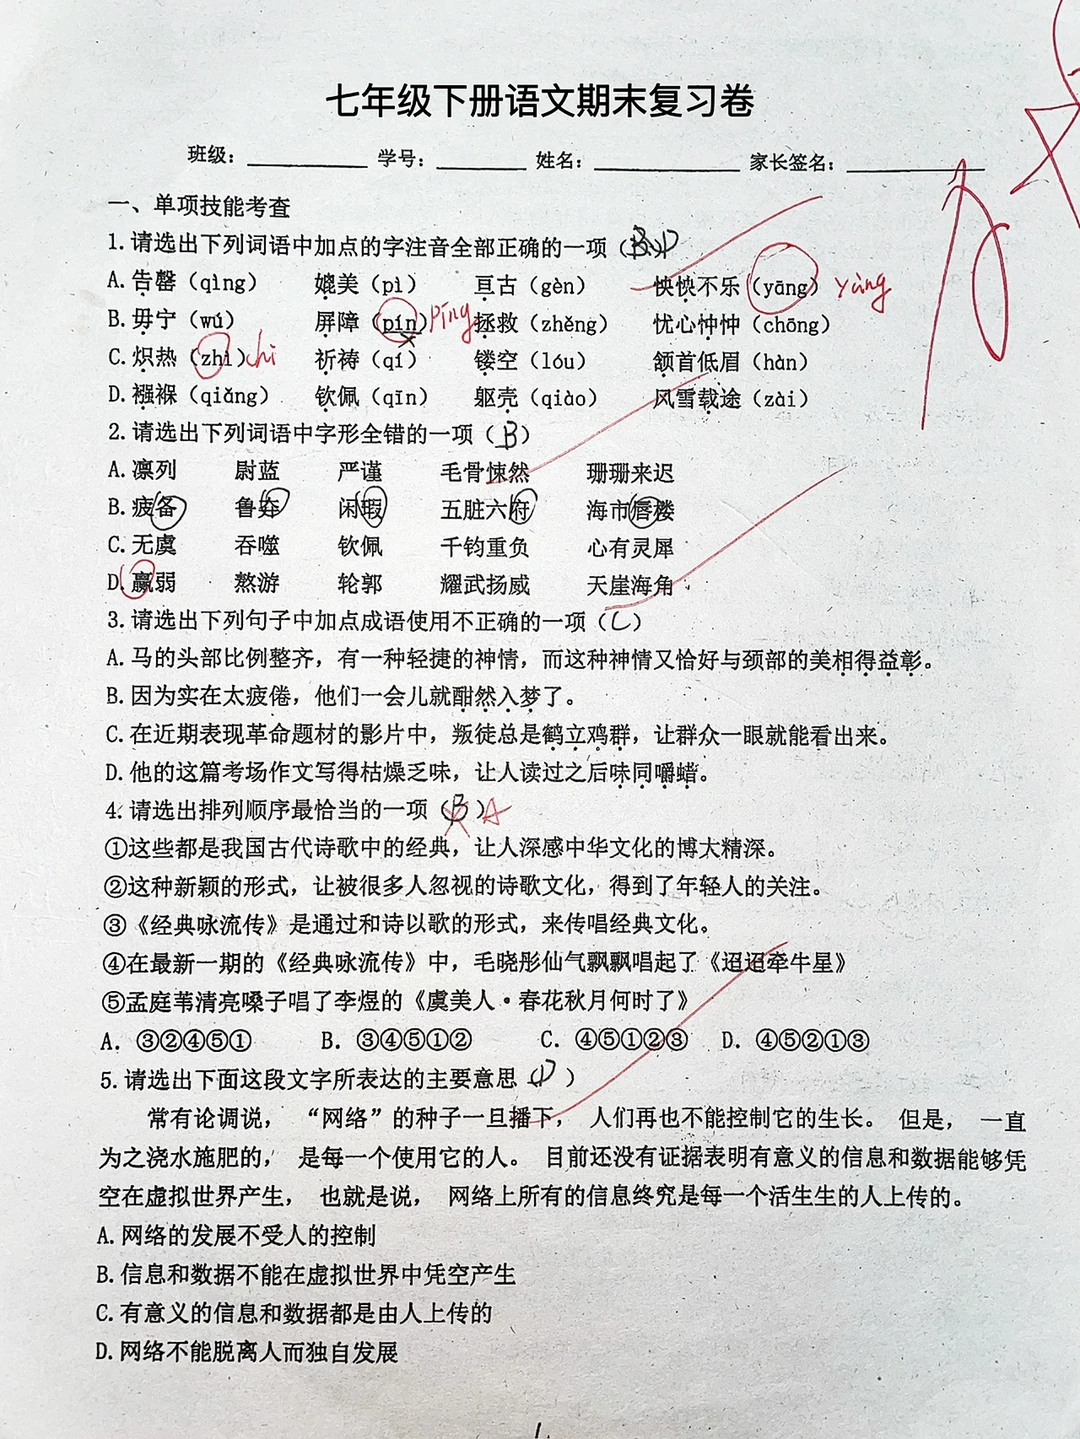 七年级下册语文期末复习卷
班级：________ 学号：________ 姓名：________ 家长签名：________
一、单项技能考查
1.请选出下列词语中加点的字注音全部正确的一项（D）
A.告罄（qìng） 媲美（pì） 亘古（gèn） 怏怏不乐（yāng） yàng
B.毋宁（wú） 屏障（pín） píng 拯救（zhěng） 忧心忡忡（chōng）
C.炽热（zhì） chì 祈祷（qí） 镂空（lóu） 颔首低眉（hàn）
D.襁褓（qiǎng） 钦佩（qīn） 躯壳（qiào） 风雪载途（zài）
2.请选出下列词语中字形全错的一项（B）
A.凛列 尉蓝 严谨 毛骨悚然 珊珊来迟
B.疲备 鲁莽 闲瑕 五脏六府 海市唇楼
C.无虞 吞噬 钦佩 千钧重负 心有灵犀
D.赢弱 熬游 轮郭 耀武扬威 天崖海角
3.请选出下列句子中加点成语使用不正确的一项（C）
A.马的头部比例整齐，有一种轻捷的神情，而这种神情又恰好与颈部的美相得益彰。
B.因为实在太疲倦，他们一会儿就酣然入梦了。
C.在近期表现革命题材的影片中，叛徒总是鹤立鸡群，让群众一眼就能看出来。
D.他的这篇考场作文写得枯燥乏味，让人读过之后味同嚼蜡。
4.请选出排列顺序最恰当的一项（B）A
①这些都是我国古代诗歌中的经典，让人深感中华文化的博大精深。
②这种新颖的形式，让被很多人忽视的诗歌文化，得到了年轻人的关注。
③《经典咏流传》是通过和诗以歌的形式，来传唱经典文化。
④在最新一期的《经典咏流传》中，毛晓彤仙气飘飘唱起了《迢迢牵牛星》
⑤孟庭苇清亮嗓子唱了李煜的《虞美人·春花秋月何时了》
A．③②④⑤① B．③④⑤①② C．④⑤①②③ D．④⑤②①③
5.请选出下面这段文字所表达的主要意思（D）
常有论调说，“网络”的种子一旦播下，人们再也不能控制它的生长。但是，一直
为之浇水施肥的，是每一个使用它的人。目前还没有证据表明有意义的信息和数据能够凭
空在虚拟世界产生，也就是说，网络上所有的信息终究是每一个活生生的人上传的。
A.网络的发展不受人的控制
B.信息和数据不能在虚拟世界中凭空产生
C.有意义的信息和数据都是由人上传的
D.网络不能脱离人而独自发展
1.